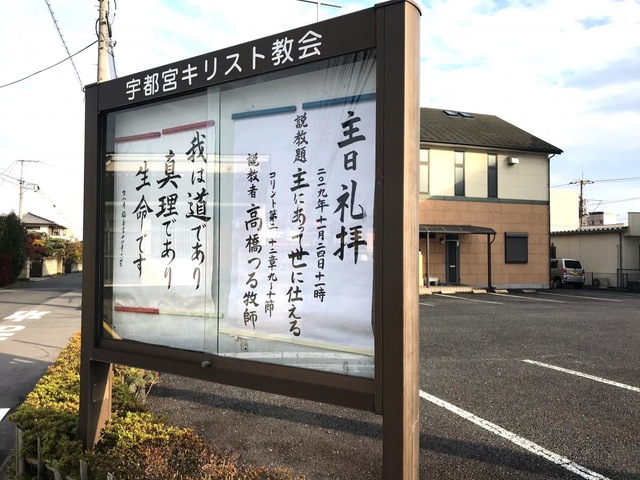 宇都宮キリスト教会
主日礼拝
二〇一九年十一月二四日十一時
説教題 主にあって世に仕える
コリント第二 十二章九〜十節
説教者 高橋つる牧師
我は道であり
真理であり
生命です